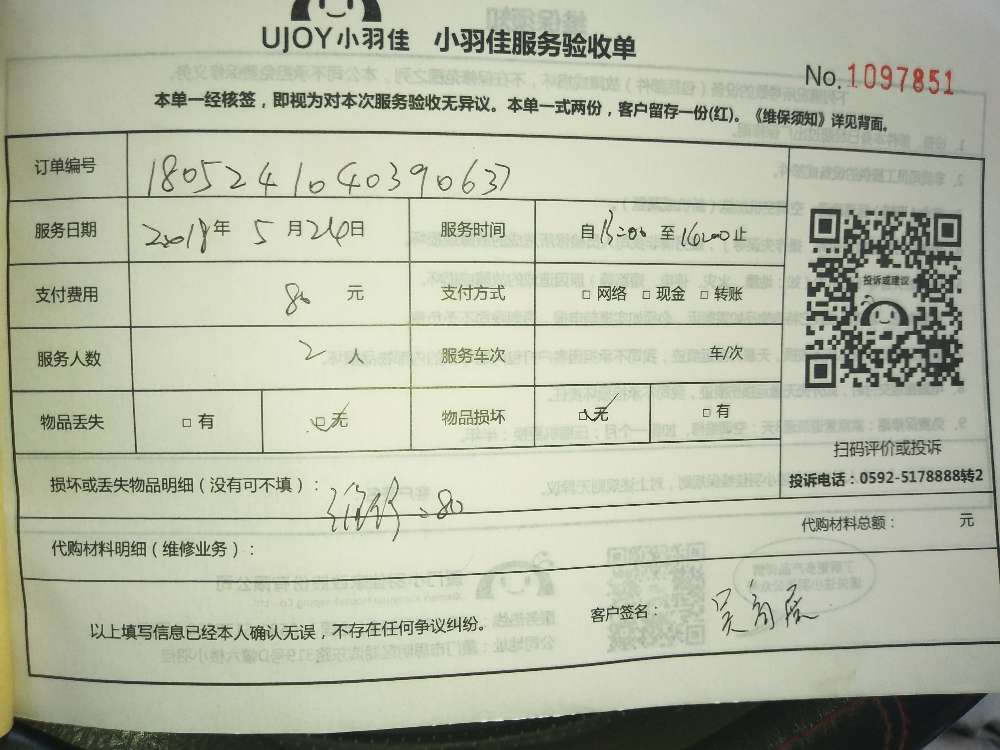 UJOY小羽佳 小羽佳服务验收单
No. 1097851
本单一经核签，即视为对本次服务验收无异议。本单一式两份，客户留存一份(红)。《维保须知》详见背面。
订单编号 180524104039063
服务日期 2018年 5月24日 服务时间 自 至16:00止
支付费用 80 元 支付方式 □网络 □现金 □转账
投诉或建议
服务人数 2人 服务车次 车/次
物品丢失 □有 □无 物品损坏 □无 □有
扫码评价或投诉
损坏或丢失物品明细（没有可不填）： =80
投诉电话：0592-5178888转2
代购材料总额： 元
代购材料明细（维修业务）：
客户签名：
以上填写信息已经本人确认无误，不存在任何争议纠纷。